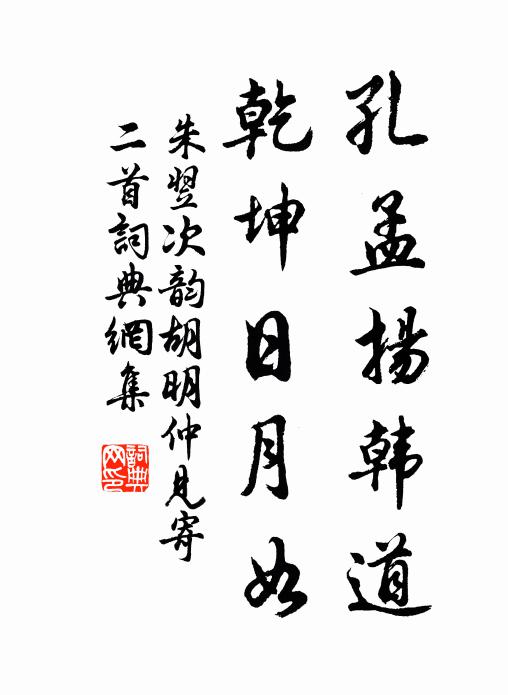 孔孟揚韩道
乾坤日月如
朱翌次韵胡明仲見寄
二首詞典網集
詞典网印